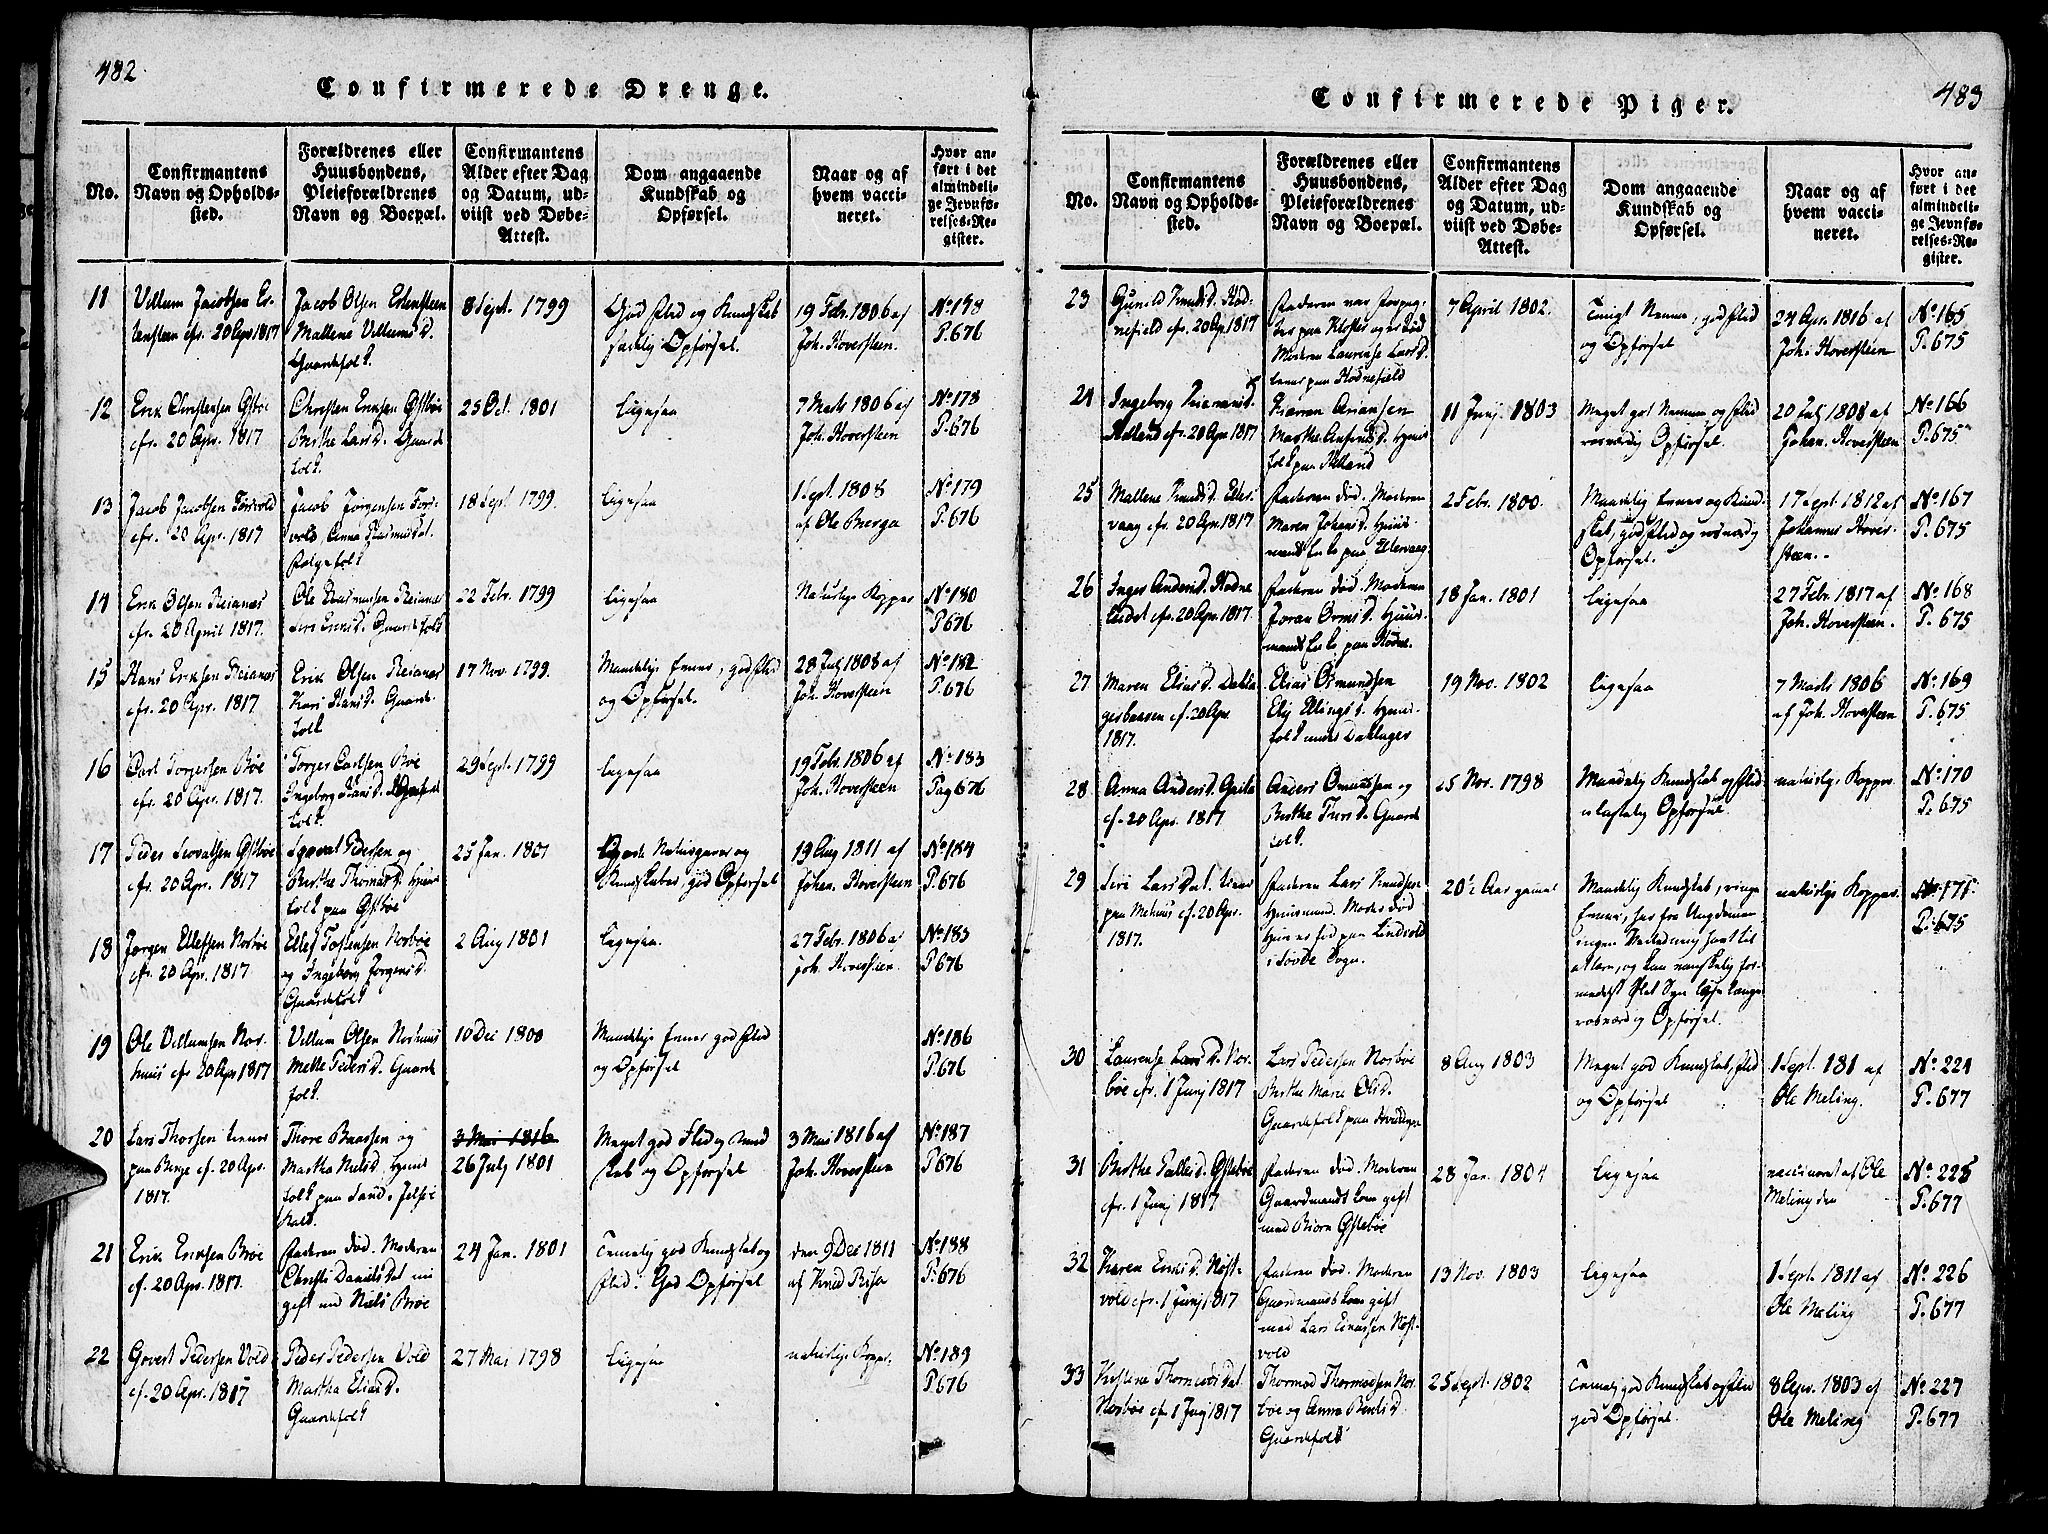 482.
Confirmerede Drenge.
No.
Confirmantens Navn og Opholds-sted.
Forældrenes eller Huusbondens, Pleieforældrenes Navn og Boepæl.
Confirmantens Alder efter Dag og Datum, ud-viist ved Døbe-Attest.
Dom angaaende Kundskab og Opførsel.
Naar og af hvem vacci-neret.
Hvor an-ført i det almindeli-ge Jevnfø-relses-Re-gister.
11
Villum Jacobsen
cfr. 20 Apr 1817
Jacob Olsen
Mallene Villumsd.
Gaardefolk.
8 Sept. 1799
God Flid og Kundskab
sædelig Opførsel.
19 Febr. 1806 af
Joh. Hoversteen.
No 178
P. 676
12
Erik Christensen Østbøe
cfr. 20 Apr. 1817
Christen Eriksen Østbøe
Berthe Larsd. Gaarde
folk.
25 Oct. 1801
Ligesaa
7 Marts 1806 af
Joh. Hoversteen
No 178
P. 676
13
Jacob Jacobsen
cfr. 20 Apr. 1817
Jacob Jørgensen
Anna Rasmusdat.
18 Sept. 1799
Ligesaa
1 Sept. 1808
af Ole Berga
No 179
P. 676
14
Erik Olsen Reianes
cfr. 20 April 1817.
Ole Rasmusen Reianes
Gaardefolk
22 Febr. 1799
Ligesaa
Naturlige Kopper
No 180
P. 676
15
Hans Eriksen Reianes
cfr. 20 Apr. 1817.
Erik Olsen Reianes
Kari Hansd. Gaarde
folk
17 Nov. 1799.
Maadelige Evner, god Flid
og Opførsel.
28 July 1808 af
Joh. Hoversteen
No 182
P. 676
16
Carl Torgersen Bøe
cfr. 20 Apr. 1817.
Torger Carlsen Bøe
Ingeborg Hansd.
folk.
29 Sept. 1799
Ligesaa
19 Febr. 1806 af
Joh. Hoversteen.
No 183
Pag 676
17
Peder Østbøe
cfr. 20 Apr. 1817
Pedersen og
Berthe Thomasd. Huus
folk paa Østbøe
25 Jan. 1801
Gode Naturgaver og
Kundskaber, god Opførsel
19 Aug 1811 af
Johan. Hoversteen
No 184
P. 676
18
Jørgen Ellefsen Norbøe
cfr. 20 Apr. 1817.
Ellef Tostensen Norbøe
og Ingeborg Jørgensd.
Gaardefolk
2 Aug 1801
Ligesaa.
27 Febr. 1806 af
Joh. Hoversteen.
No 185
P. 676
19
Ole Villumsen Nor-
huus cfr 20 Apr 1817
Villum Olsen Norhuus
Mette Pedersd. Gaarde
folk.
10 Dec 1800
Maadelige Evner god Flid
og Opførsel
No 186
P. 676
20
Lars Thorsen tiener
paa Berge cf. 20 Apr.
1817.
Thore Baarsen og
Martha Nielsd. Huus
folk paa Sand, Jelsøe
3 Mai 1816
26 July 1801
Meget god Flid og Kund
skab og Opførsel
3 Mai 1816 af
Joh. Hoversteen
No 187
P. 676
21
Erik Eriksen Brøe
cf. 20 Apr. 1817.
Faderen død. Moderen
Christi Danielsdat nu
gift med Niels Brøe
24 Jan. 1801
Temelig god Kundskab og
Flid. God Opførsel
den 9 Dec 1811
af Knud Risa
No 188
P. 676
22
Govert Pedersen Vold
cf. 20 Apr. 1817
Peder Pedersen Vold
Martha Eliasd.
Gaardefolk
27 Mai 1798
Ligesaa
naturlige Kopper.
No 189
P. 676
483
Confirmerede Piger.
No.
Confirmantens Navn og Opholds-sted.
Forældrenes eller Huusbondens, Pleieforældrenes Navn og Boepæl.
Confirmantens Alder efter Dag og Datum, ud-viist ved Døbe-Attest.
Dom angaaende Kundskab og Opførsel.
Naar og af hvem vacci-neret.
Hvor an-ført i det almindeli-ge Jevnfø-relses-Re-gister.
23
Gunild Knudsd. Hod-
nefield cfr. 20 Apr. 1817
Faderen var Forpag-
ter paa Kloster og er død
Moderen Laurense Larsd.
lever paa Hodnefield
7 April 1802.
Ringe Nemme, god Flid
og Opførsel
24 Apr. 1816 af
Joh. Hoversteen
No 165
P. 675
24
Ingeborg
cfr. 20 Apr. 1817
folk paa
11 Junij 1803
Meget god Nemme og Flid
rosværdig Opførsel.
20 July 1808 af
Johan. Hoversteen
No 166
P. 675
25
Mallene Knudsd. Eller-
vaag cfr. 20 Apr. 1817
Faderen død. Moderen
Maren Johansd. Huus-
mands Enke paa Ellervaag
2 Febr. 1800.
Maadelig Evner og Kund-
skab, god Flid og rosværdig
Opførsel.
17 Sept 1812 af
Johannes Hover-
steen.
No 167
P. 675
26
Inger Andersd. Hodne
cfr. 20 Apr. 1817
Faderen død. Moderen
Joran Ormsd. Huus-
mands Enke paa Hodne.
18 Jan. 1801
Ligesaa
27 Febr. 1817 af
Joh. Hoversteen.
No 168
P. 675
27
Maren Eliasd. Dahla
gerbaasen cf. 20 Apr.
1817.
Elias Osmundsen
Elij Ellingsd. Huus-
folk under Dahlager
19 Nov. 1802
Ligesaa
7 Marts 1806
af Joh. Hoversteen
No 169
P. 675
28
Anna Andersd.
cf. 20 Apr. 1817
Anders Omundsen og
Berthe Thorsd. Gaarde
folk.
25 Nov. 1798
Maadelig Kundskab og Flid
ulastelig Opførsel.
naturlige Kopper.
No 170
P. 675
29
Siri Larsdat. tiener
paa Mehuus cf. 20 Apr.
1817.
Faderen Lars Knudsen
Huusmand. Moder død
Hun er fød paa Lindvold
i Sovde Sogn.
20½ Aar gamel
Maadelig Kundskab, ringe
Evner, har fra Ungdommen
ingen Veiledning havt til
at læse, og kan vanskelig for-
medelst slet Syn læse længe
rosværdig Opførsel.
naturlige Kopper.
No 171
P. 675
30
Laurense Larsd. Nor-
bøe cfr. 1 Junij 1817
Lars Pedersen Norbøe
Berthe Marie Olsd.
Gaardefolk paa
8 Aug 1803
Meget god Kundskab, Flid
og Opførsel
1 Sept. 181 af
Ole Meling.
No 224
P. 677
31
Berthe Pallesd. Østebøe
cfr. 1 Junij 1817
Faderen død. Moderen
Gaardmands kone gift
med Biørn Østebøe
28 Jan. 1804
Ligesaa
vaccineret af Ole
Meling den
No 225
P. 677
32
Karen Eriksd. Nøst-
vold cfr. 1 Junij 1817
Faderen død. Moderen
Gaardmands kone gift
med Lars Einarsen Nøst-
vold
13 Nov. 1803
Ligesaa
1 Sept. 1811 af
Ole Meling
No 226
P. 677
33
Thormodsdat.
Norbøe cfr 1 Junij 1817
Thormod Thormodsen Nor-
bøe og Anna Bentsd.
Gaardefolk
25 Sept. 1802
Temelig god Kundskab og Flid
god Opførsel.
8 Apr. 1803 af
Ole Meling
No 227
P. 677